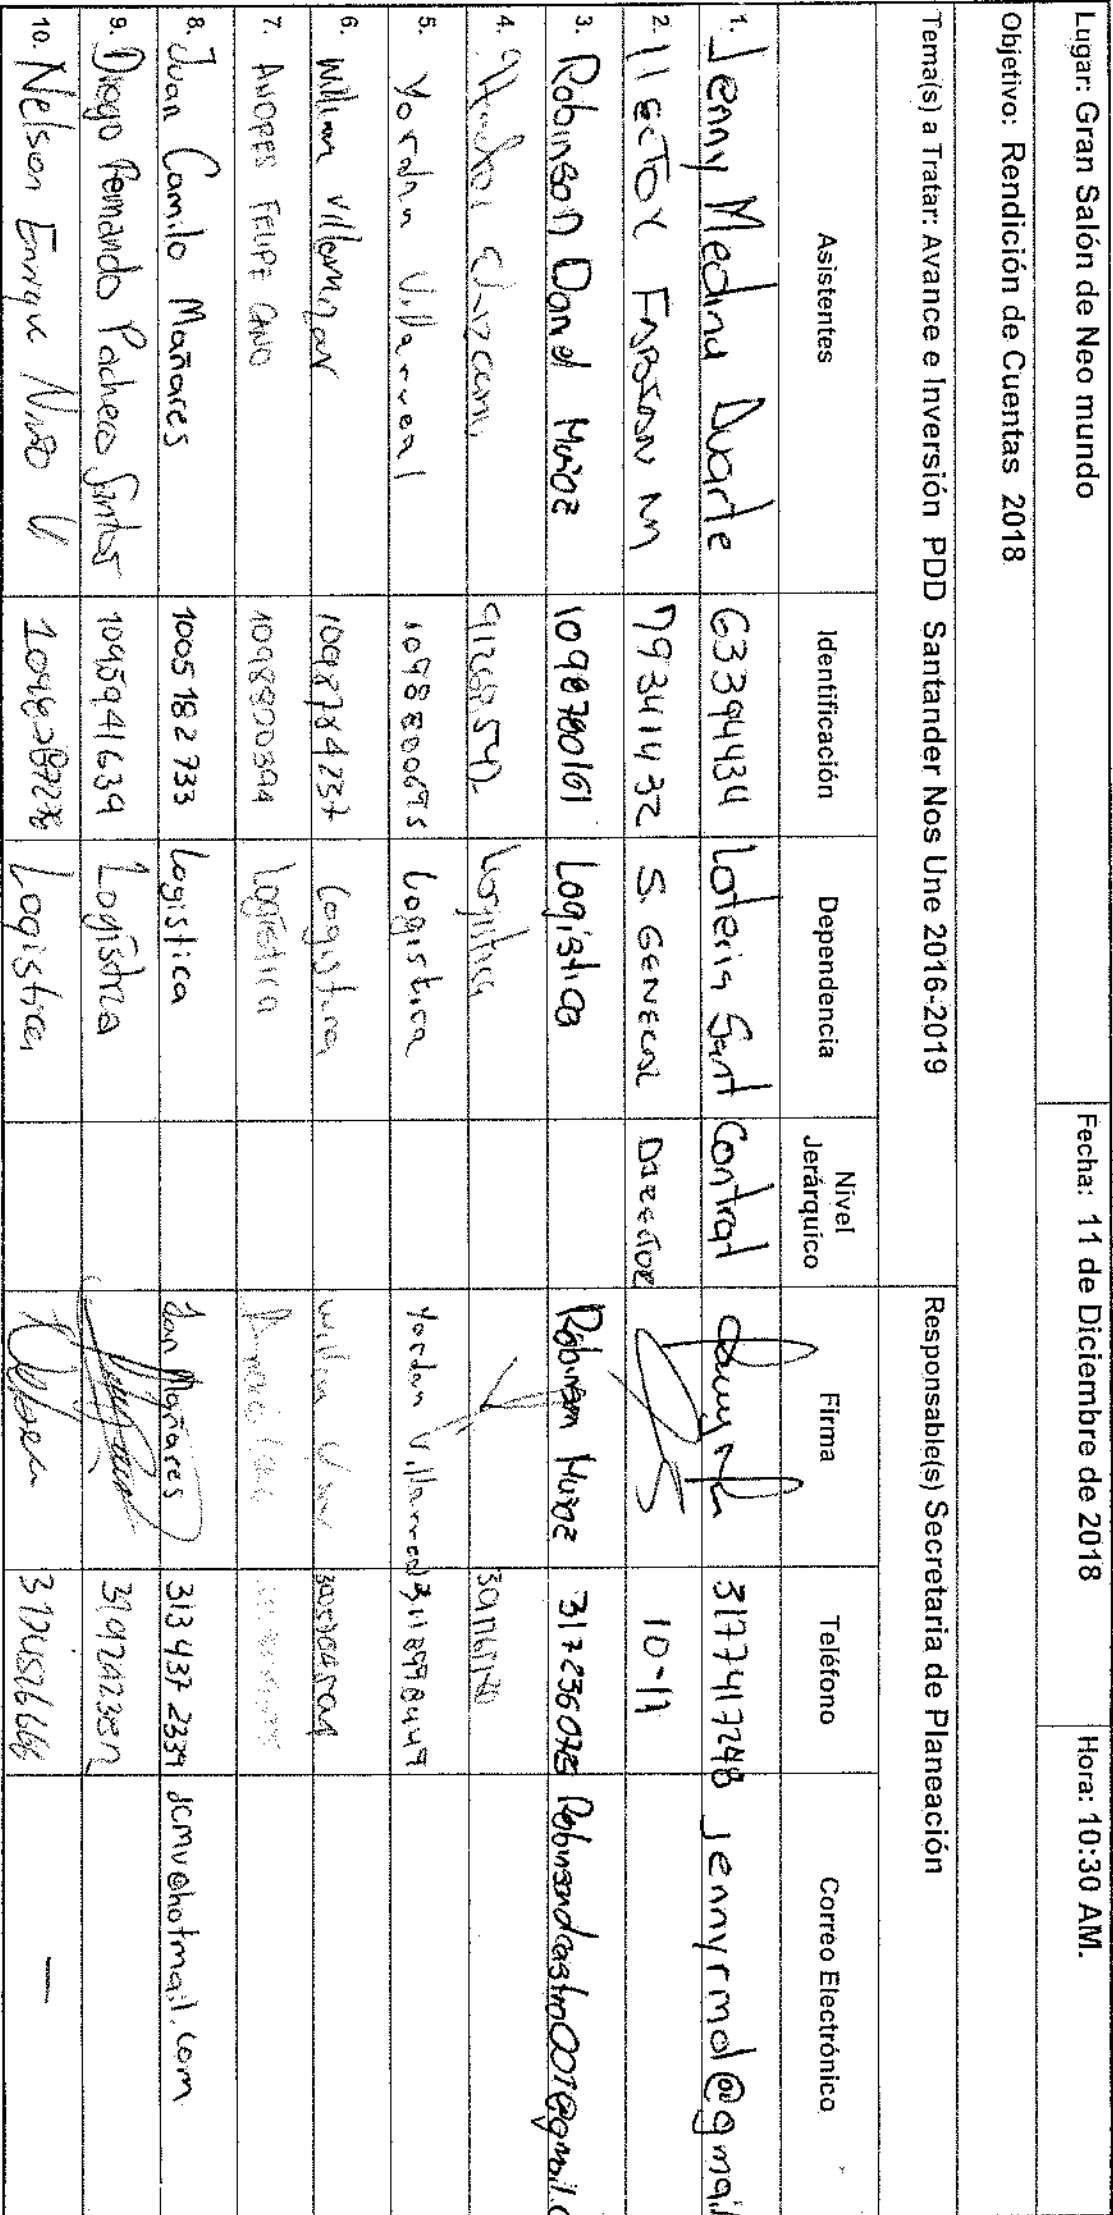 Lugar: Gran Salón de Neo mundo Fecha: 11 de Diciembre de 2018 Hora: 10:30 AM.
Objetivo: Rendición de Cuentas 2018
Tema(s) a Tratar: Avance e Inversión PDD Santander Nos Une 2016-2019 Responsable(s) Secretaria de Planeación
Asistentes Identificación Dependencia Nivel Jerárquico Firma Teléfono Correo Electrónico
1. Jenny Medina Duarte 63394434 Loteria Sant Control 3177417248 jennyrmd@gmail
2. HECTOR FABIAN M 79341432 S. GENERAL DIRECTOR 10-11
3. Robinson Daniel Muñoz 1098780161 Logistica Robinson Muñoz
4. Logistica
5. Yordan Villarreal Logistica Yordan Villarreal
6. William Villamizar 1098784237 Logistica
7. ANDRES FELIPE CANO 1098800394 Logistica
8. Juan Camilo Mañares 1005182733 Logistica Juan Mañares 313 437 2339 jcmv@hotmail.com
9. Diego Fernando Pacheco Santos 1095941639 Logistica
10. Nelson Enrique Niño V Logistica —